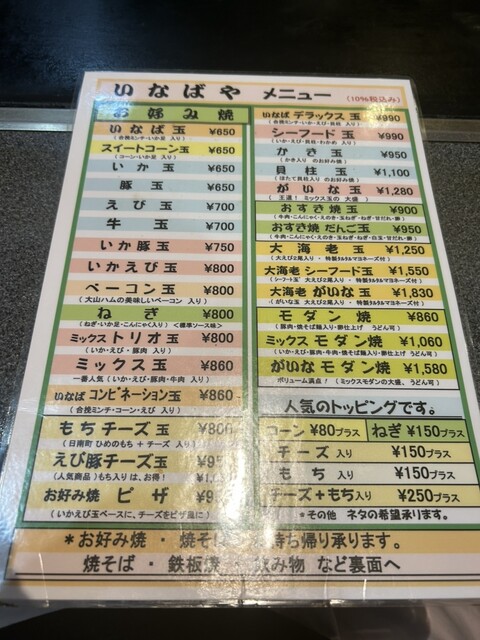 いなばや メニュー (10%税込み)
お好み焼
いなば玉 ¥650
(合挽ミンチ・いか足 入り)
スイートコーン玉 ¥650
(コーン・いか足 入り)
いか玉 ¥650
豚玉 ¥650
えび玉 ¥700
牛玉 ¥700
いか豚玉 ¥750
いかえび玉 ¥800
ベーコン玉 ¥800
(大山ハムの美味しいベーコン 入り)
ねぎ ¥800
(ねぎ・いか足・こんにゃく入り) <標準ソース味>
ミックストリオ玉 ¥800
(いか・えび・豚肉 入り)
ミックス玉 ¥860
一番人気(いか・えび・豚肉・牛肉 入り)
いなばコンビネーション玉 ¥860
(合挽ミンチ・コーン・えび 入り)
もちチーズ玉 ¥800
(日南町 ひめのもち + チーズ 入り)
えび豚チーズ玉
(人気商品)もち入りは、お得!
お好み焼ピザ
(いかえび玉ベースに、チーズをピザ風に)
いなばデラックス玉 ¥990
(合挽ミンチ・いか・えび・貝柱 入り)
シーフード玉 ¥990
(いか・えび・貝柱・わかめ 入り)
かき玉 ¥950
(かき入り のお好み焼)
貝柱玉 ¥1,100
(ほたて貝柱入り のお好み焼)
がいな玉 ¥1,280
(王道! ミックス玉の 大盛)
おすき焼玉 ¥900
(牛肉・こんにゃく・えのき・玉ねぎ・ねぎ・甘だれ・卵)
おすき焼だんご玉 ¥950
(牛肉・こんにゃく・えのき・玉ねぎ・ねぎ・白玉・甘だれ・卵)
大海老玉 ¥1,250
(大えび2尾入り ・ 特製タルタルマヨネーズ付)
大海老シーフード玉 ¥1,550
(シーフード玉 大えび2尾入り ・ 特製タルタルマヨネーズ付)
大海老がいな玉 ¥1,830
(がいな玉 大えび2尾入り ・ 特製タルタルマヨネーズ付)
モダン焼 ¥860
(豚肉・焼そば麺入り・卵仕上げ うどん可)
ミックスモダン焼 ¥1,060
(いか・えび・豚肉・牛肉・焼そば麺入り・卵仕上げ うどん可)
がいなモダン焼 ¥1,580
ボリューム満点!(ミックスモダンの大盛、うどん可)
人気のトッピングです。
コーン ¥80プラス ねぎ ¥150プラス
チーズ入り ¥150プラス
もち入り ¥150プラス
チーズ+もち入り ¥250プラス
*その他 ネタの希望承ります。
*お好み焼 ・ 焼そば 持ち帰り承ります。
焼そば ・ 鉄板焼 ・ 飲み物 など裏面へ